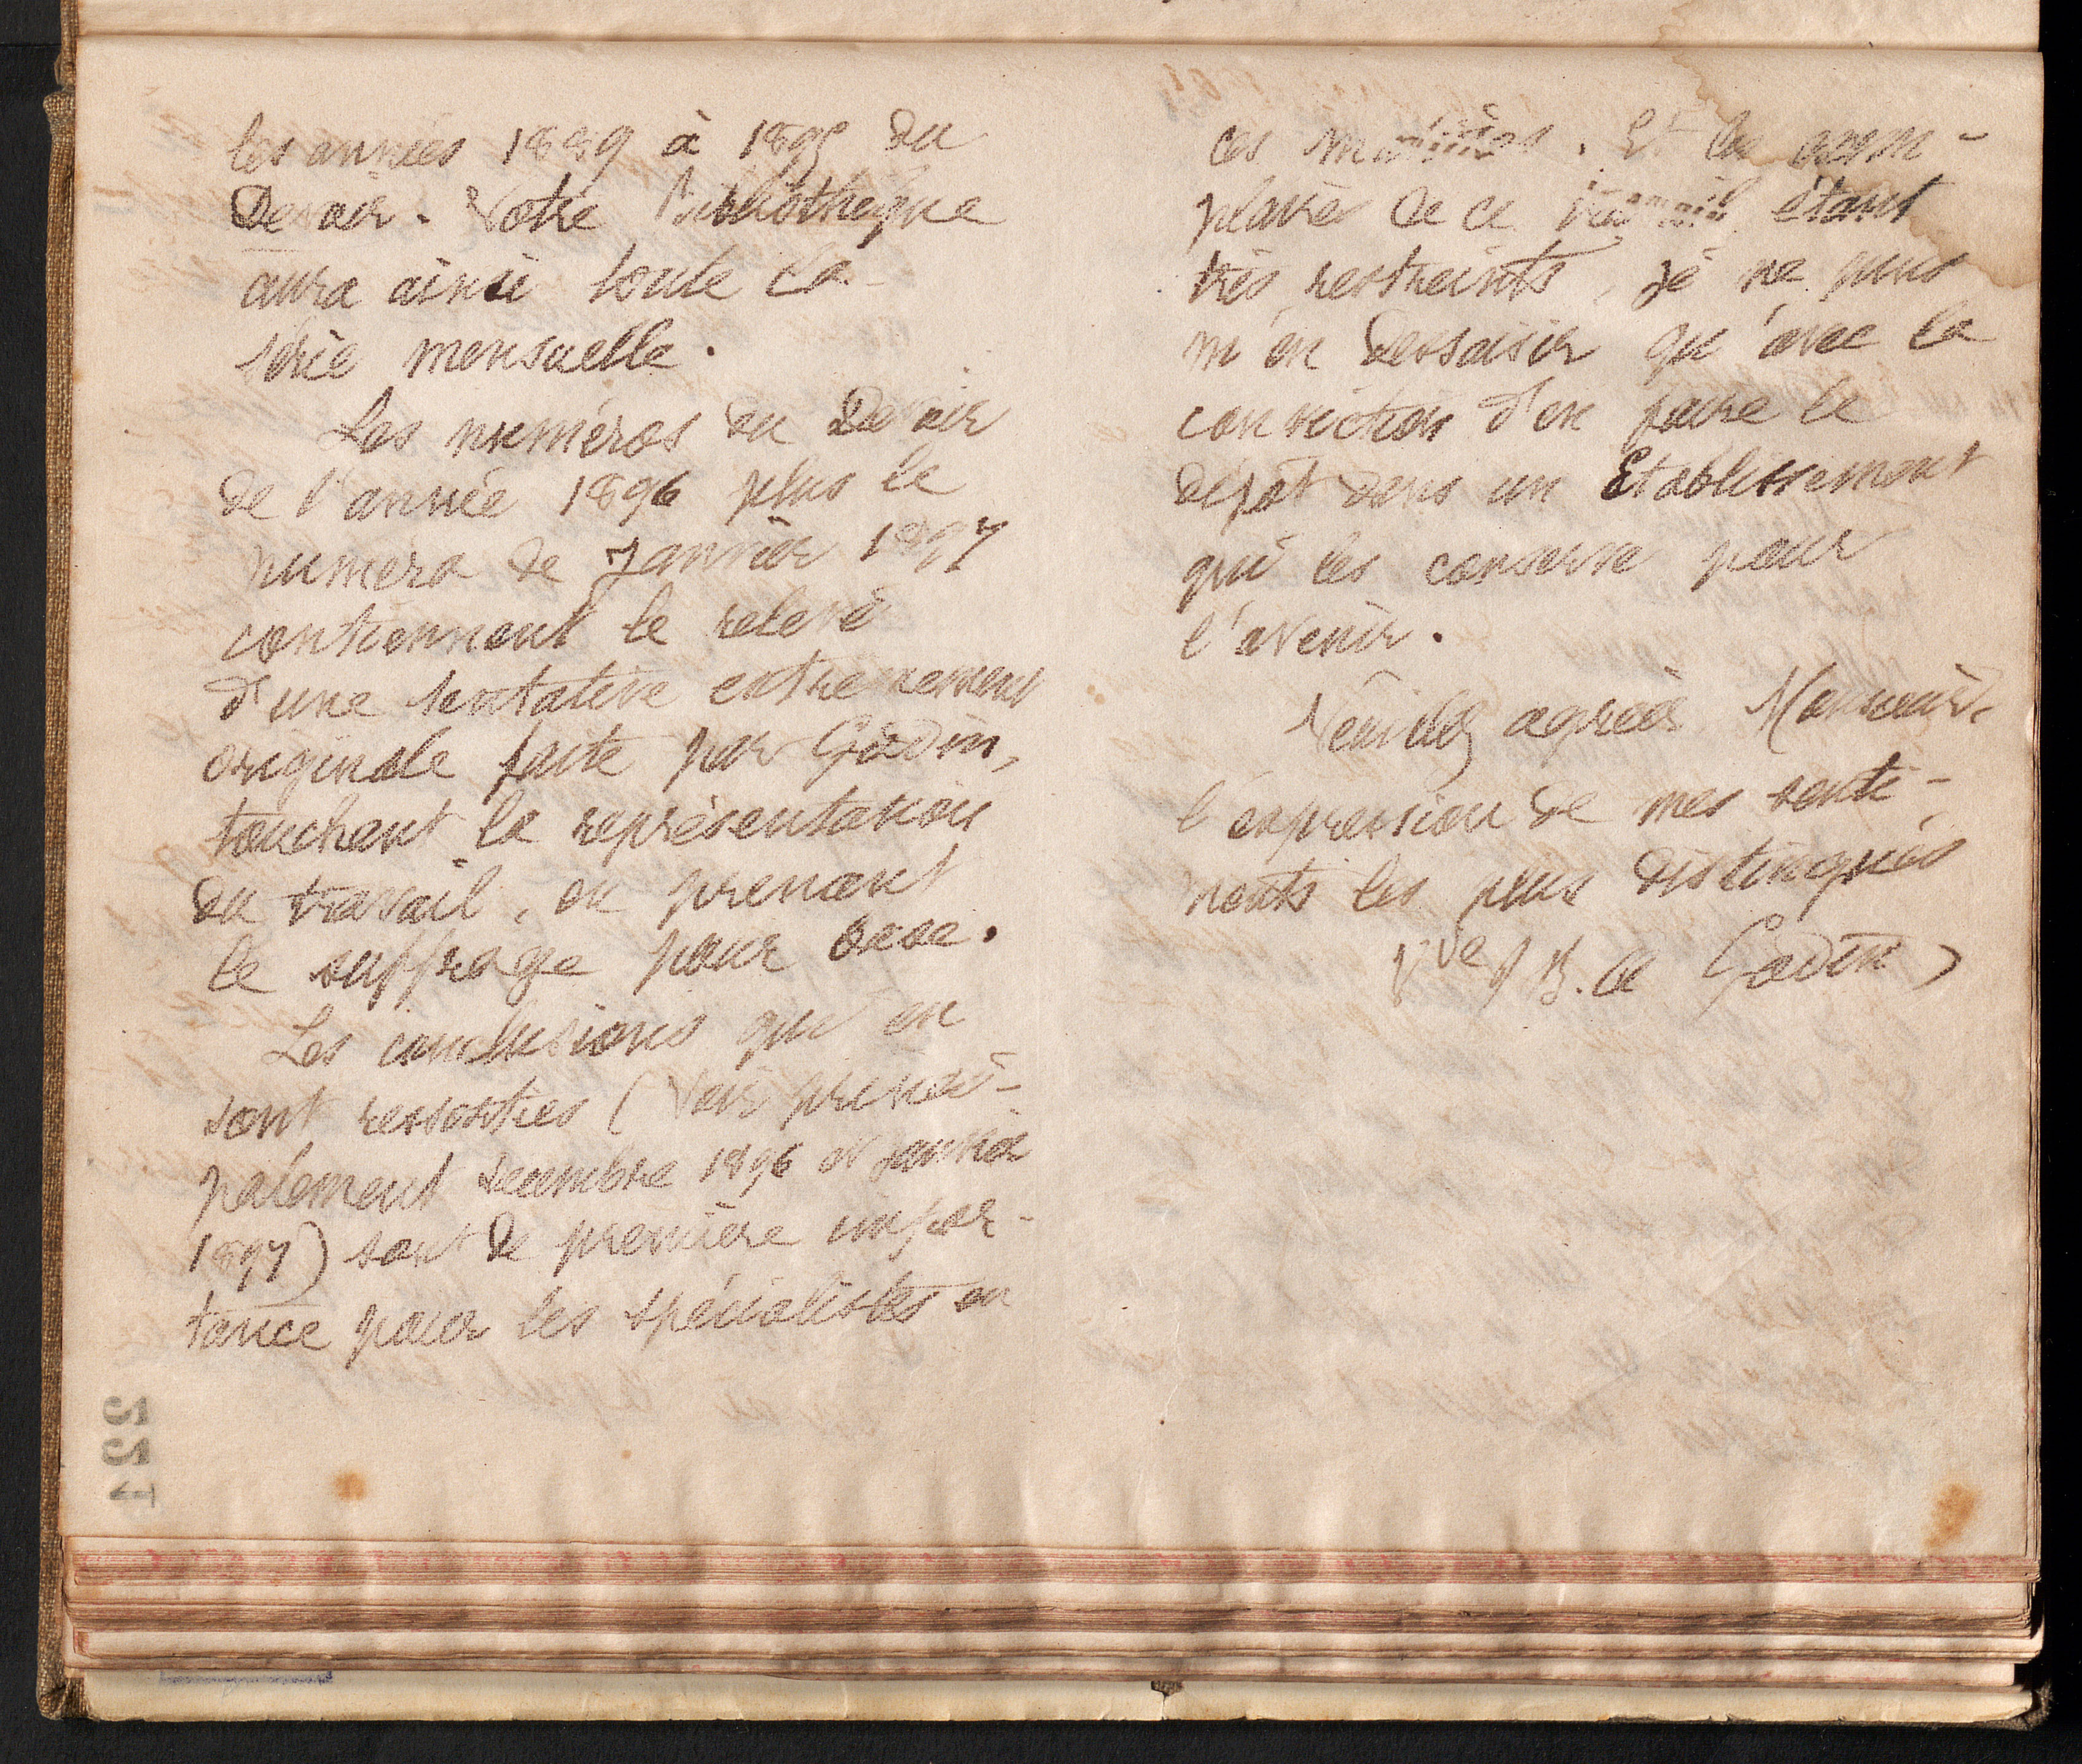 les années 1889 à 1895 du
Devoir. Votre Bibliothèque
aura ainsi toute la
série mensuelle.
Les numéros du Devoir
de l'année 1896 plus le
numéro de Janvier 1897
contiennent le relevé
d'une tentative extrêmement
originale faite par Godin,
touchant la représentation
du travail, en prenant
le suffrage pour base.
Les conclusions qui en
sont ressorties (Voir princi-
palement Décembre 1896 et janvier
1897) sont de première impor-
tance pour les spécialistes en
ces matières. Et les exem-
plaires de ce travail étant
très restreints, je ne puis
m'en dessaisir qu'avec la
conviction d'en faire le
dépôt dans un Etablissement
qui les conserve pour
l'avenir.
Veuillez agréer Monsieur,
l'expression de mes senti-
ments les plus distingués
Vve J B. A Godin
221